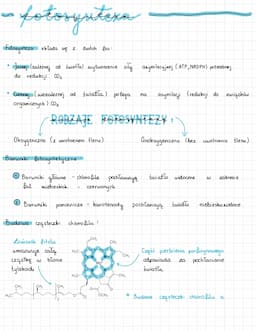 fotosynteza
Fotosynteza składa się z dwóch faz:
• jasnej (zależnej od światła) wytwarzanie siły asymilacyjnej (ATP, NADPH) potrzebnej
do redukcji CO₂
• ciemnej (niezależnej od światła) polega na asymilacji (redukcji do związków
organicznych) CO₂
RODZAJE FOTOSYNTEZY:
Oksygeniczna (z uwolnieniem tlenu)
Anoksygeniczna (bez uwolnienia tlenu)
Barwniki fotosyntetyczne
Barwniki główne - chlorofile pochłaniają światło widoczne w zakresie
fal niebieskich i czerwonych
Barwniki pomocnicze - karotenoidy pochłaniają światło niebieskozielone
Budowa cząsteczki chlorofilu:
Łańcuch fitolu
umocowuje całą
cząsteczkę w błonie
tylakoidu
Część pierścienia porfirynowego
odpowiada za pochłanianie
światła
CH₃
H₃C
• Budowa cząsteczki chlorofilu a